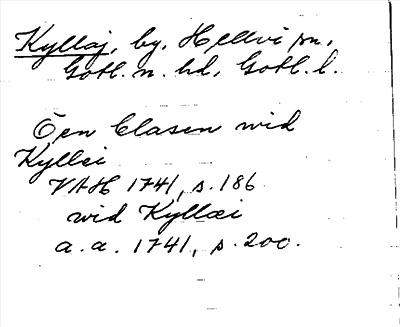 Kyllaj, by, Hellvi sn,
Gotl. n. hd, Gotl. l.
Öen Clasen wid
Kyllei
VAH 1741, s. 186
wid Kyllæi
a. a. 1741, s. 200.